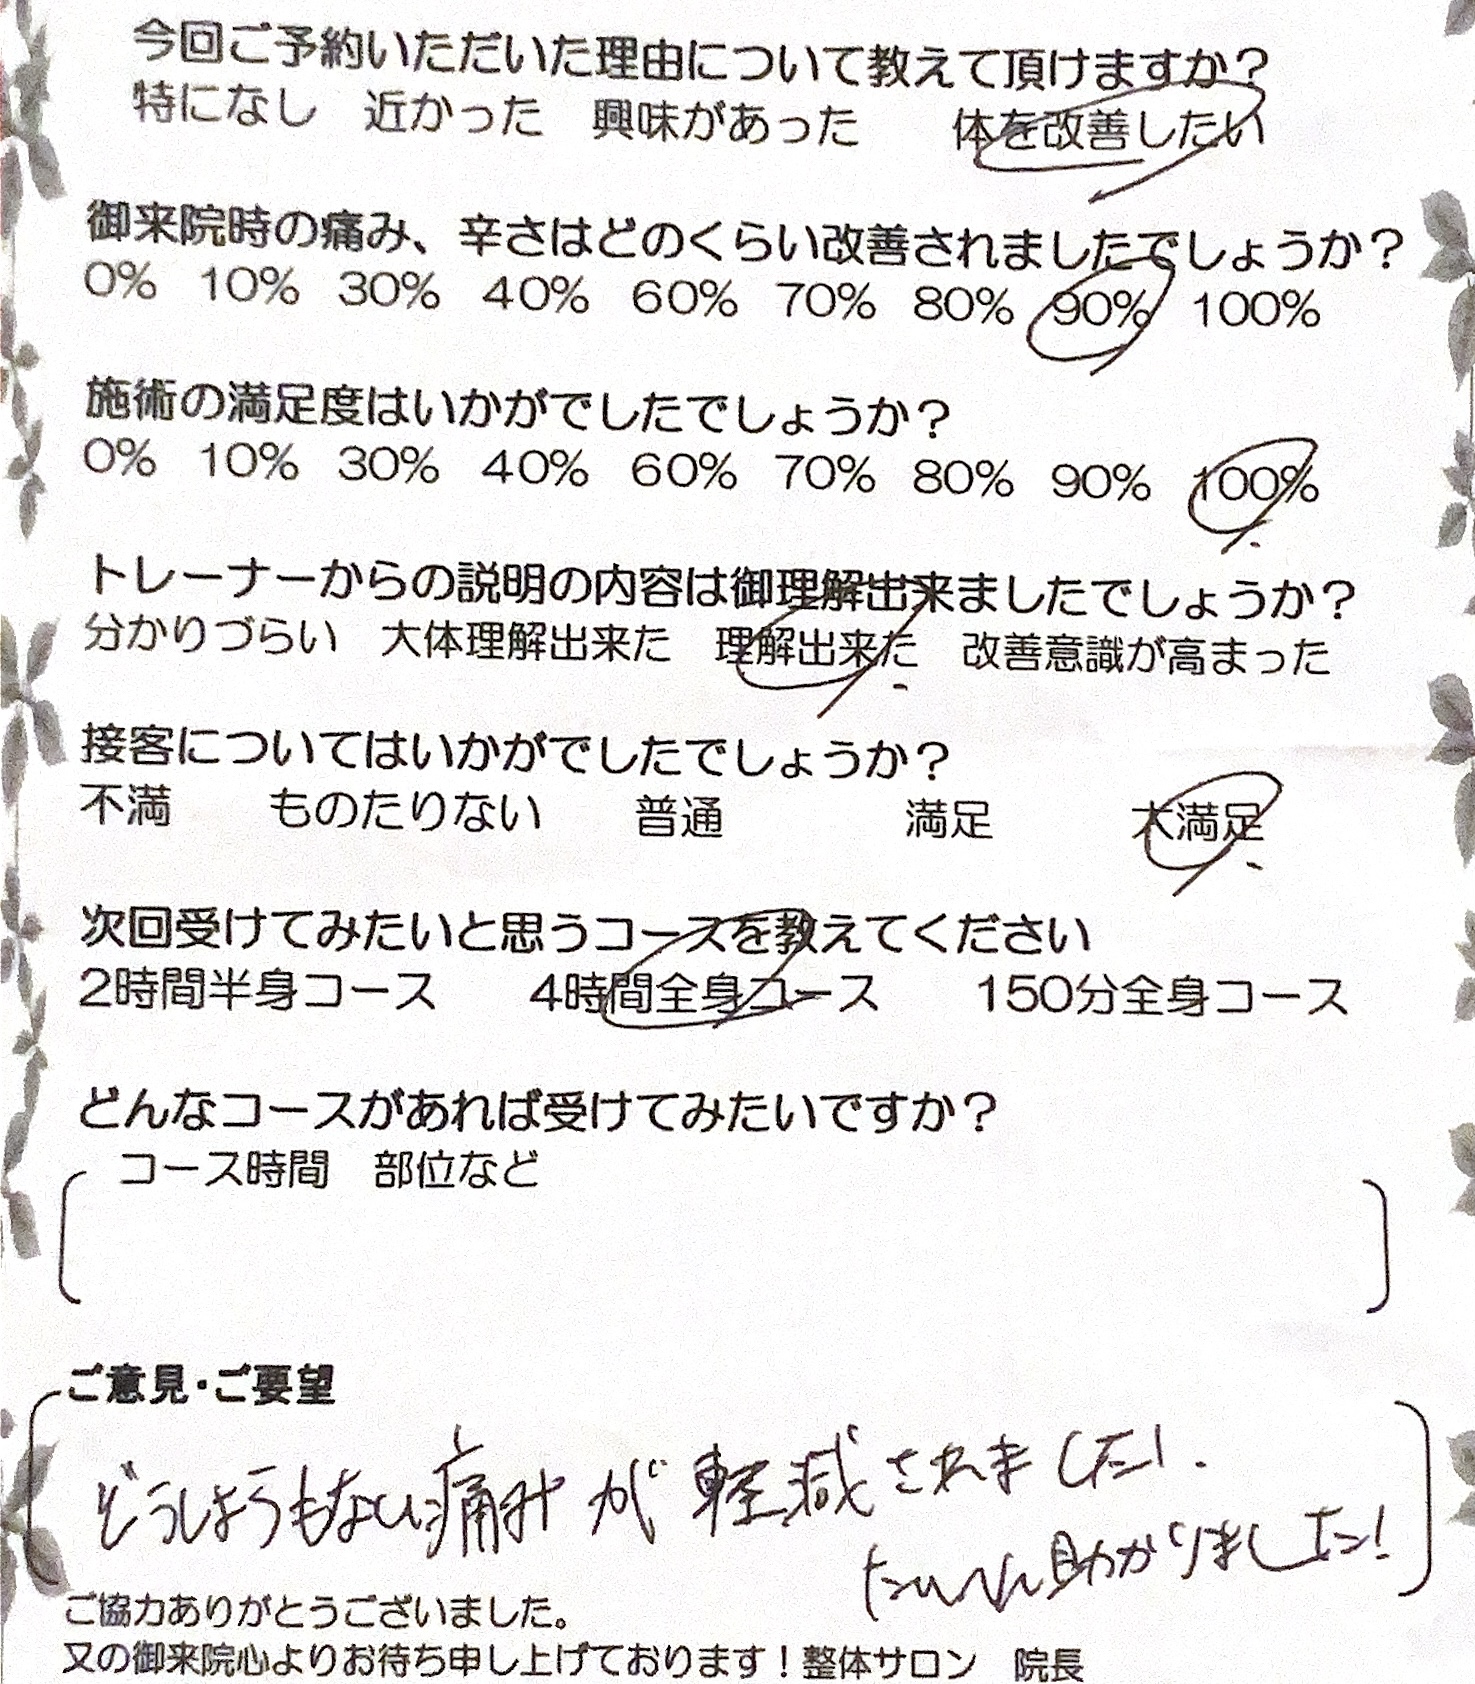 今回ご予約いただいた理由について教えて頂けますか？
特になし　近かった　興味があった　体を改善したい
御来院時の痛み、辛さはどのくらい改善されましたでしょうか？
0%　10%　30%　40%　60%　70%　80%　90%　100%
施術の満足度はいかがでしたでしょうか？
0%　10%　30%　40%　60%　70%　80%　90%　100%
トレーナーからの説明の内容は御理解出来ましたでしょうか？
分かりづらい　大体理解出来た　理解出来た　改善意識が高まった
接客についてはいかがでしたでしょうか？
不満　ものたりない　普通　満足　大満足
次回受けてみたいと思うコースを教えてください
2時間半身コース　4時間全身コース　150分全身コース
どんなコースがあれば受けてみたいですか？
コース時間　部位など
ご意見・ご要望
どうしようもない痛みが軽減されました!.
たいへん助かりました!
ご協力ありがとうございました。
又の御来院心よりお待ち申し上げております！整体サロン　院長